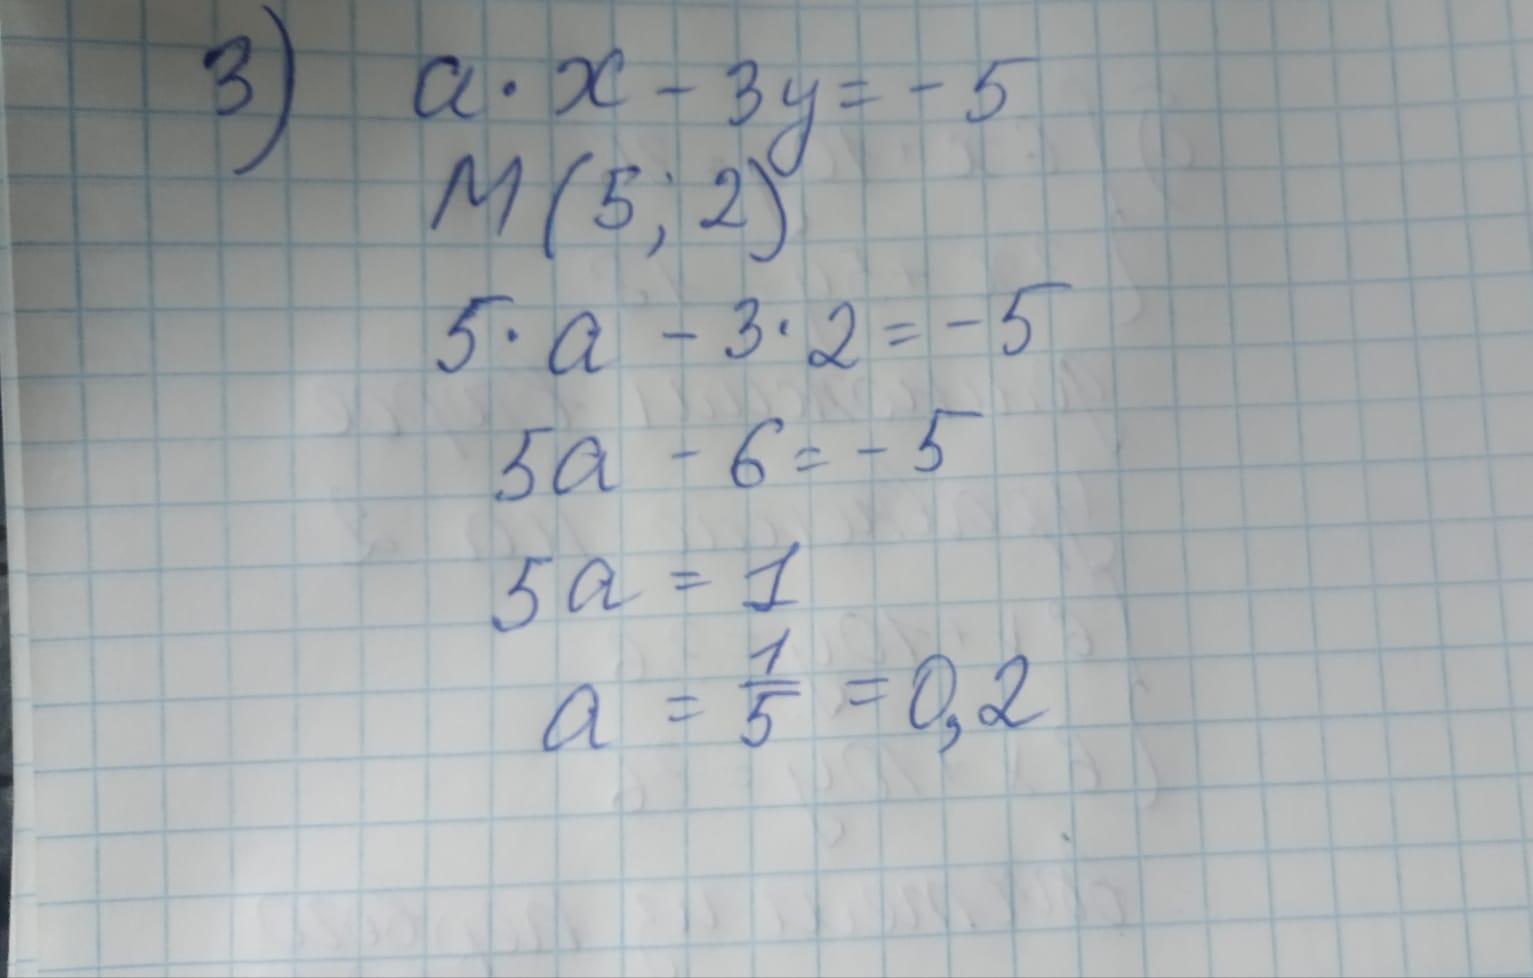 3) a · x - 3y = - 5
M (5; 2)
5 · a - 3 · 2 = - 5
5a - 6 = - 5
5a = 1
a = 1/5 = 0,2